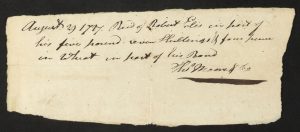 August 29 1797 Recd of Robert Eles in part of
his five pound seven Shillings & four pence
in Wheat in part of his Bond
Thos Moore & Co